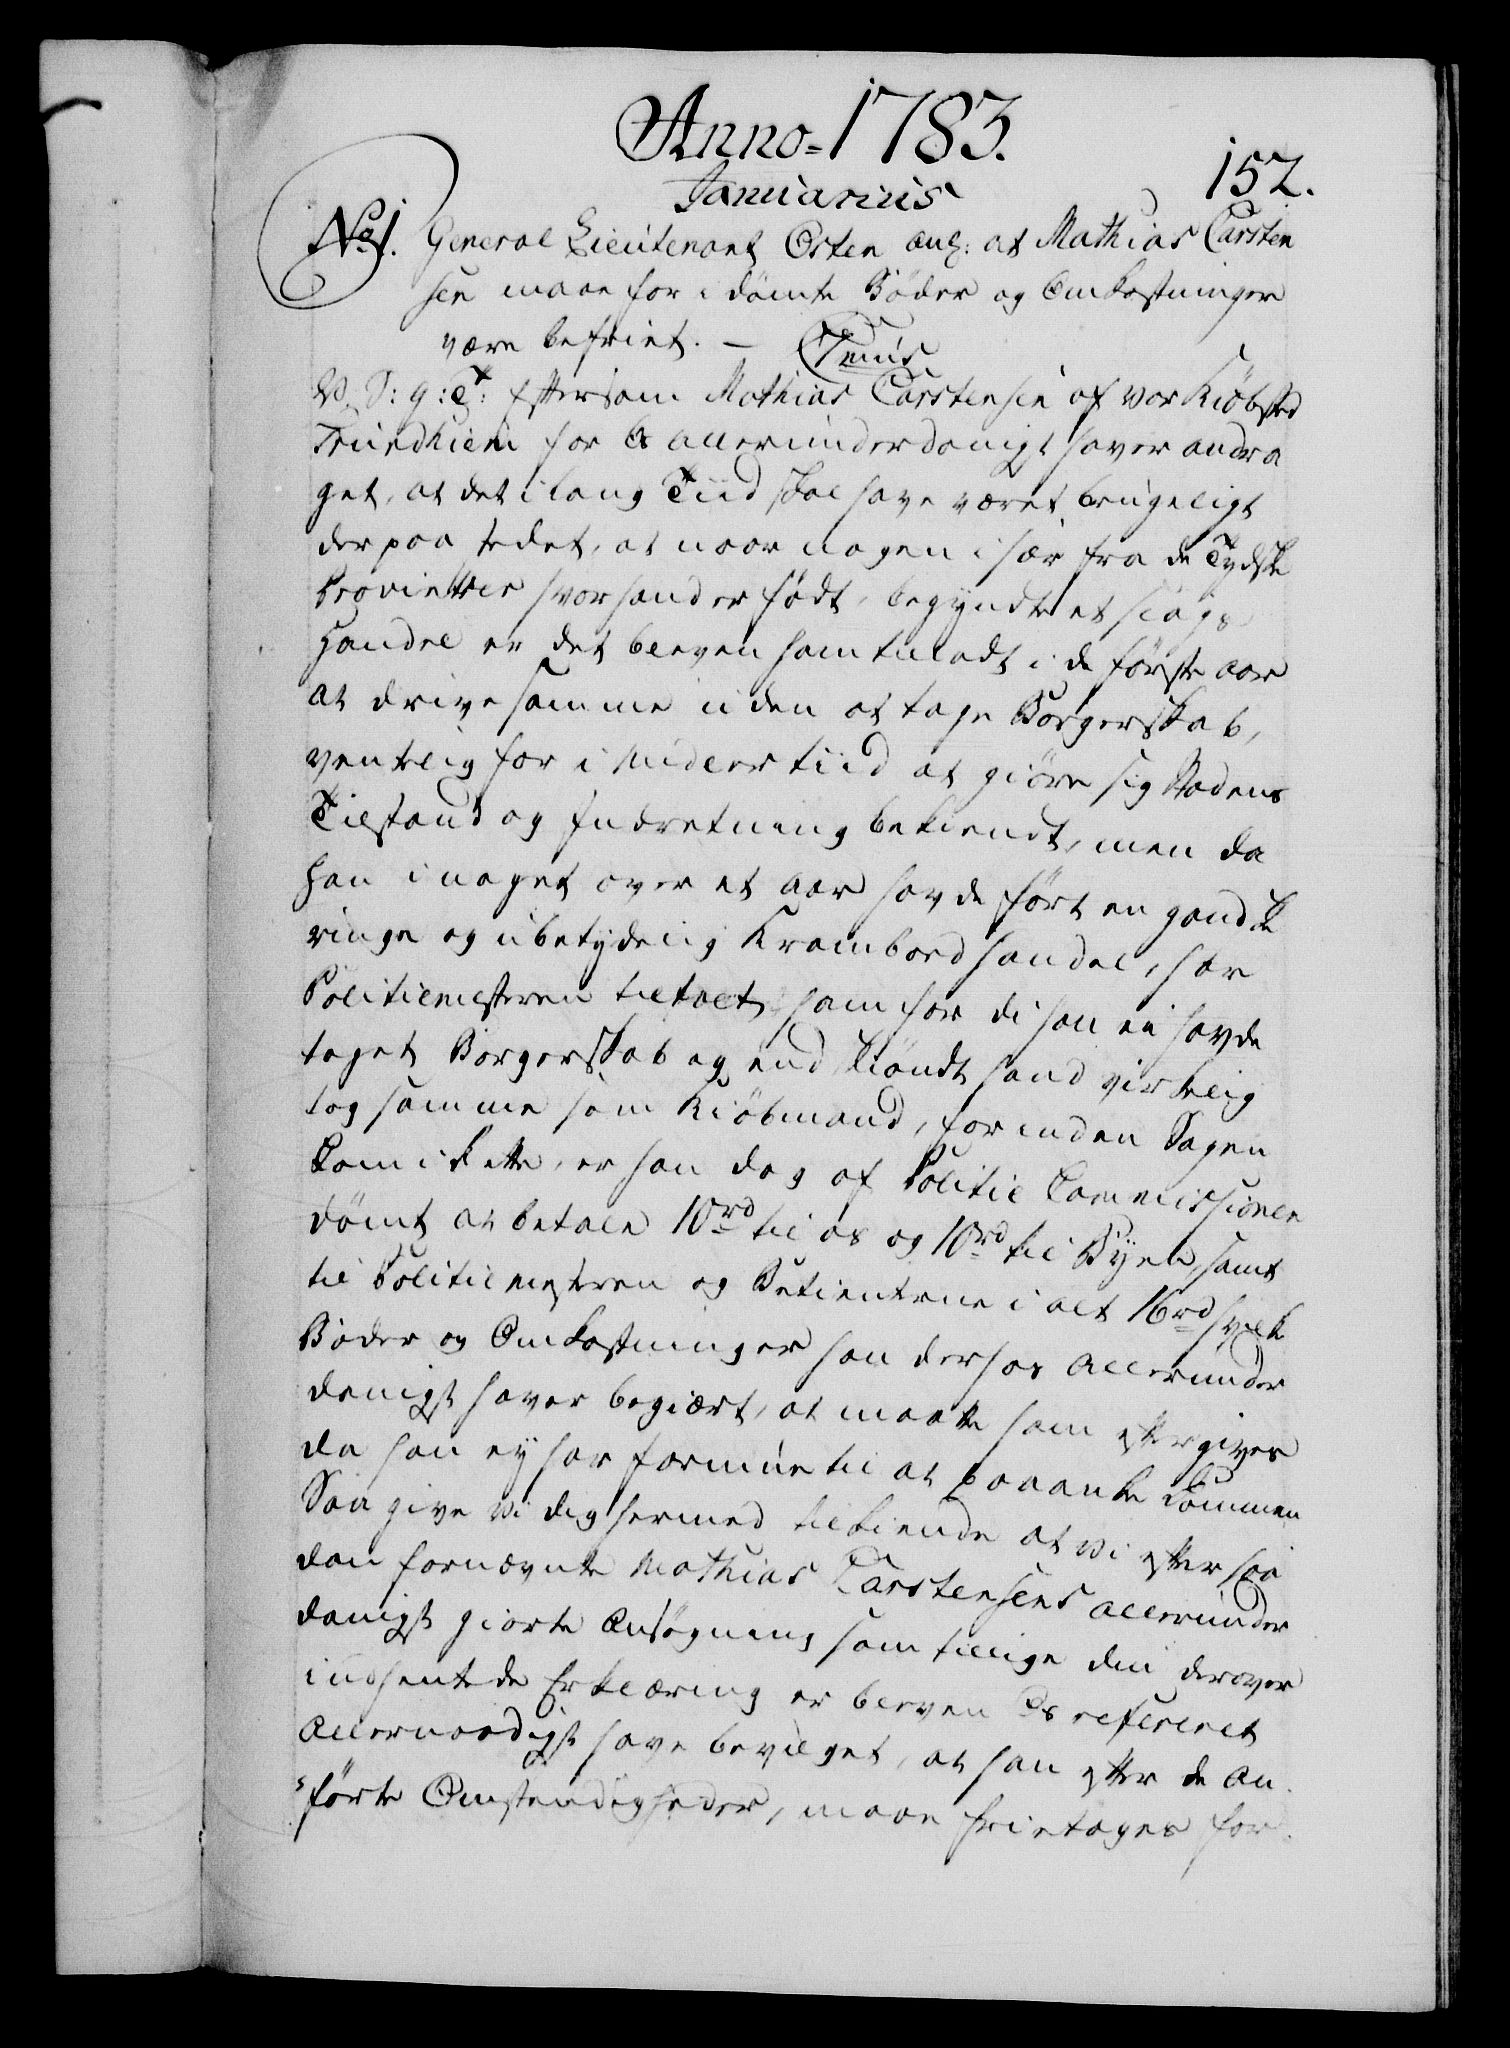 Anno=1783.
152.
Januarius
No 1. General Lieutenant Osten ang: at Mathias Carsten
sen maae for idömte Böder og Omkostninger
være befriet. —
W. S: g: T: Eftersom Mathias Carstensen af vor Kiöbsted
Trundhiem for Os allerunderdanigst haver andra
get, at det i lang Tiid skal have været brugeligt
der paa stedet, at naar nogen i sær fra de Tydske
Provintzer hvor hand er födt, begyndte et slags
Handel er det bleven ham tilladt i de förste aar
at drive samme uden at tage Borgerskab,
ventelig for i midlertiid at giöre sig Stadens
Tilstand og Indretning bekiendt, men da
han i noget over et aar havde fört en gandske
ringe og ubetydelig Krambod handel, har
Politiemesteren tiltalt ham for di han ei havde
taget Borgerskab og end skiöndt hand virkelig
tog samme som Kiöbmand, forinden Sagen
kom i Rette, er han dog af Politie Commissionen
dömt at betale 10rd til os og 10rd til Byen, samt
til Politiemesteren og Betienterne i alt 16rd hvilke
Böder og Omkostninger han derhos allerunder
danigst haver begiært, at maatte ham eftergives
da han ey har formue til at paaanke Dommen
Saa give vi dig hermed tilkiende at vi efter saa
dan fornævnte Mathias Carstensens allerunder
danigst giorte Ansögning samt tillige din derover
indsendte Erklæring er bleven Os refereret
Allernaadigst have bevilget, at han efter de an
förte Omstændigheder, maae fritages for